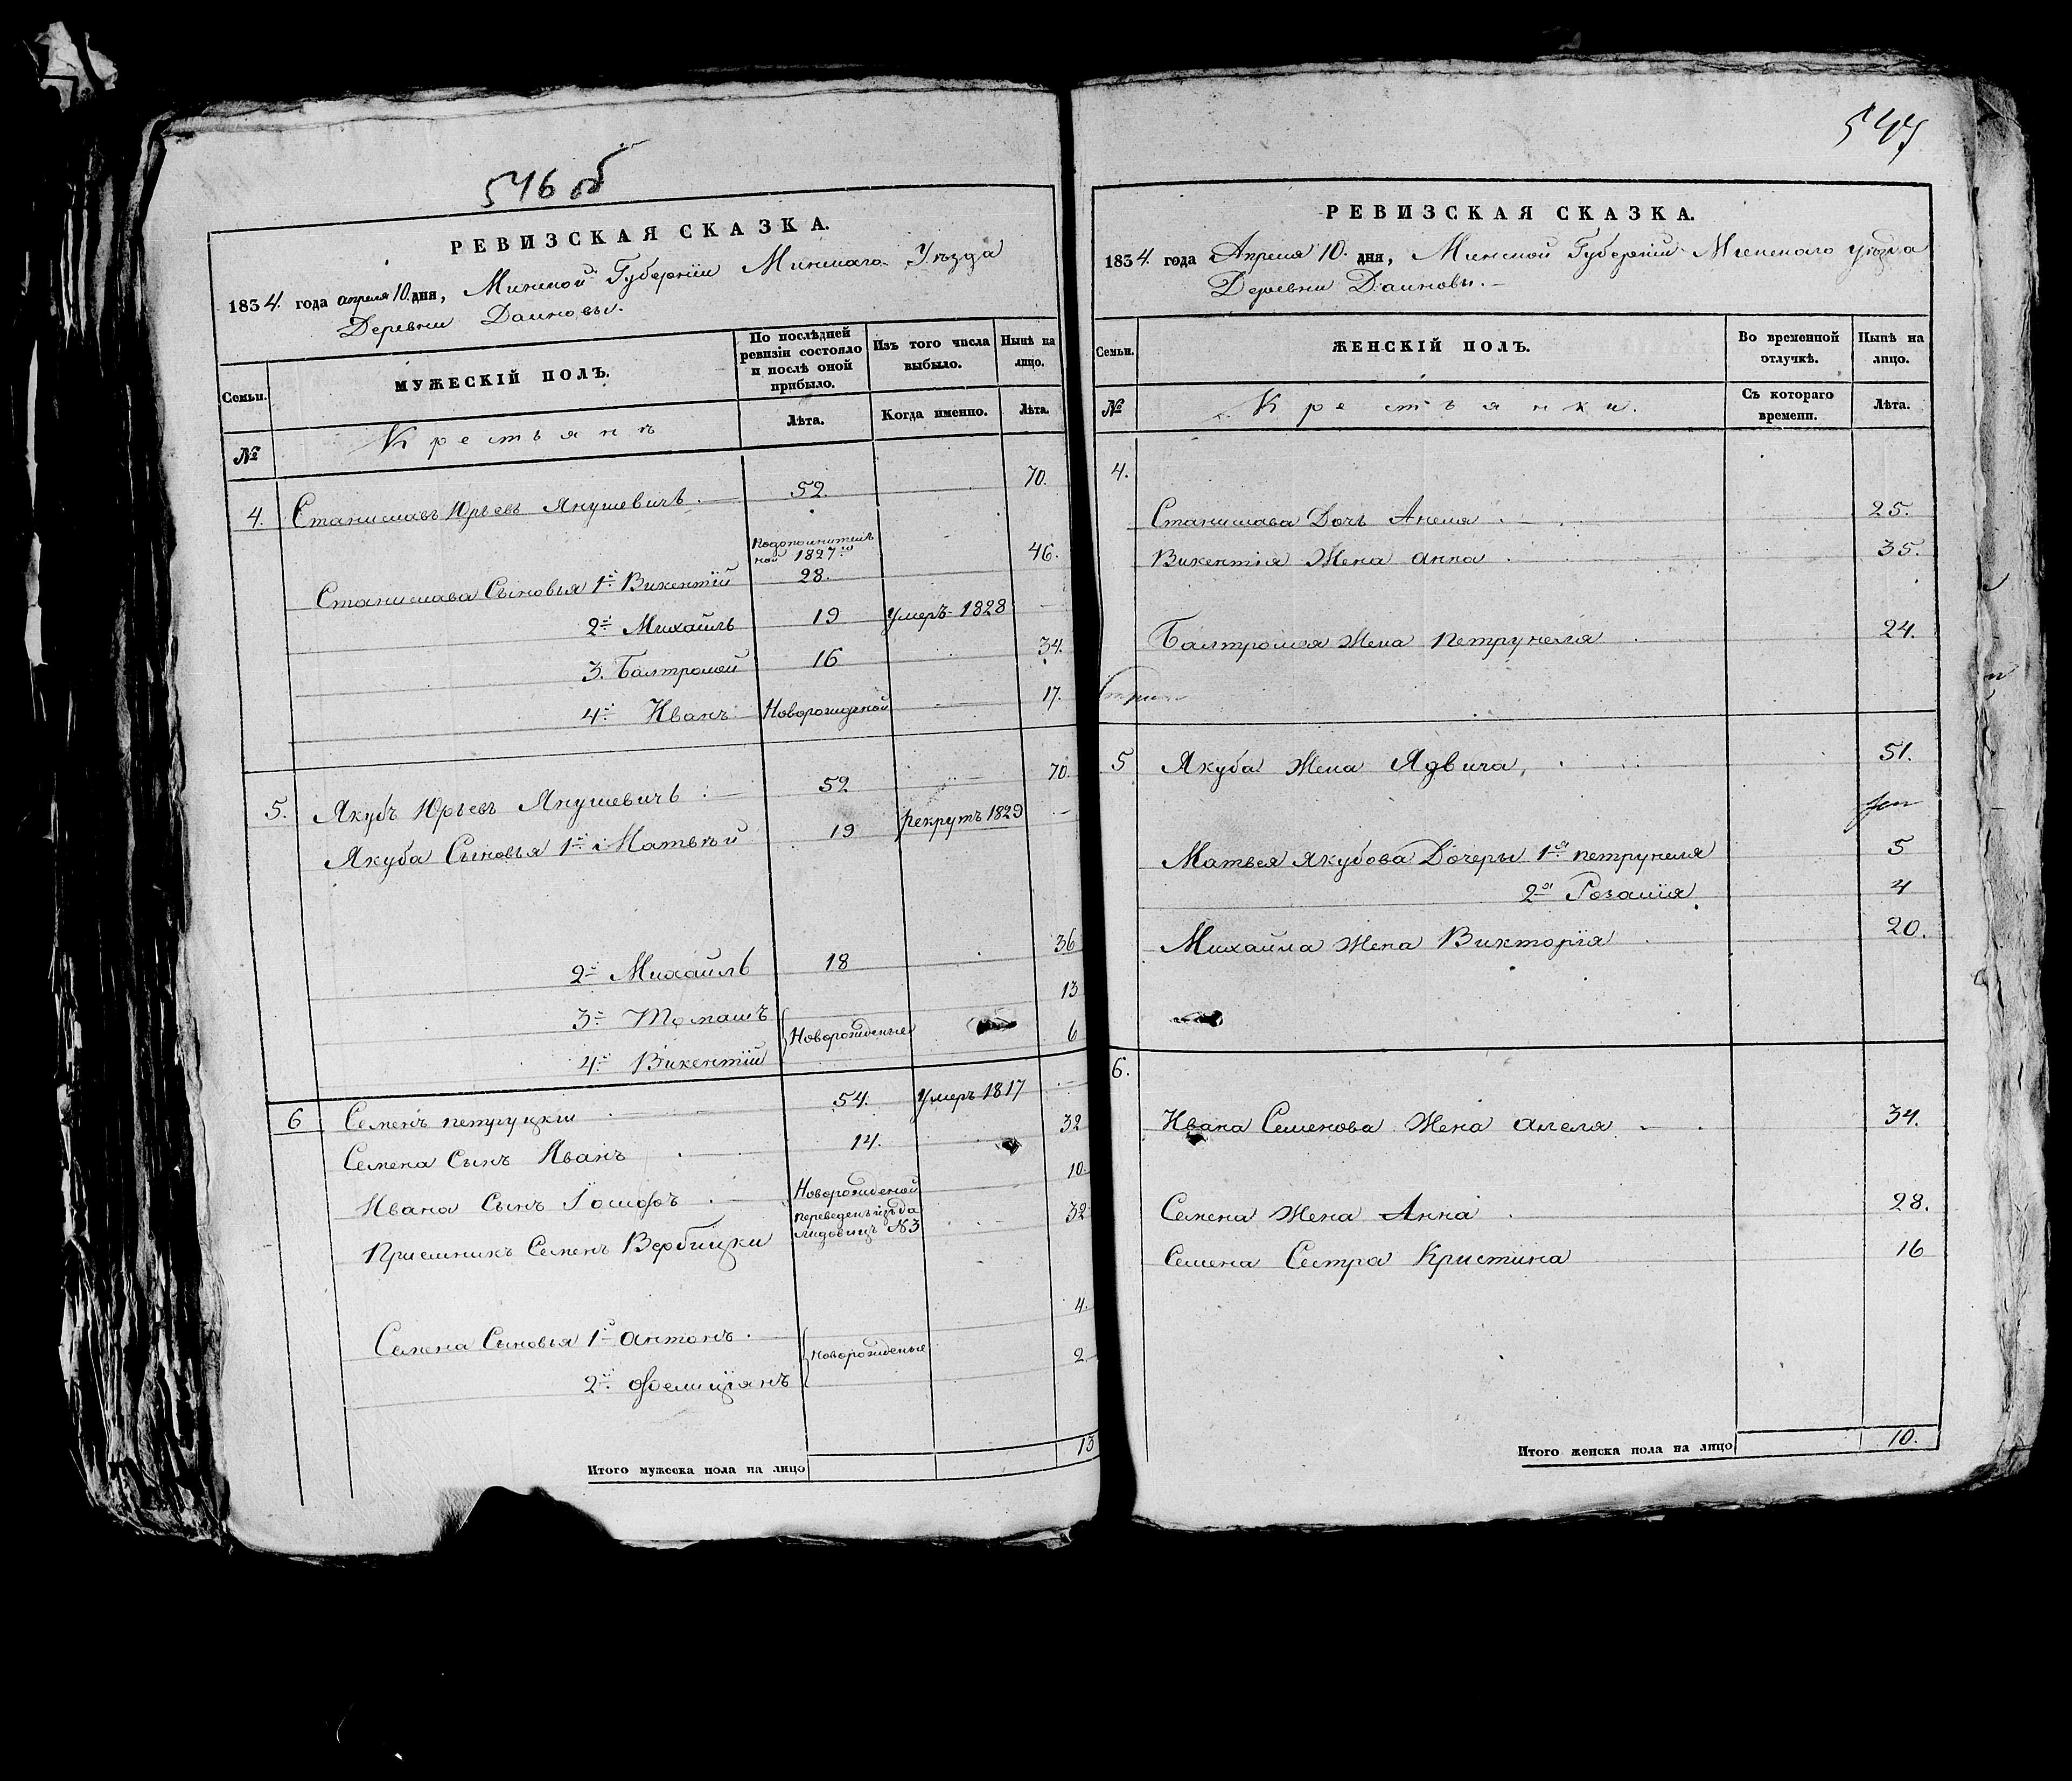 546 об
РЕВИЗСКАЯ СКАЗКА.
1834. года апреля 10. дня, Минской Губернiи Минскаго Уѣзда
Деревни Даиновы.
Семьи.
МУЖЕСКIЙ ПОЛЪ.
По послѣдней ревизiи состояло и послѣ оной прибыло.
Изъ того числа выбыло.
Нынѣ на лицо.
№
Крестьянъ
Лѣта.
Когда именно.
Лѣта.
4. Станиславъ Юрьевъ Янушевичъ 52. 70.
Подополнительной 1827го
Станислава Сыновья 1й Викентiй 28. 46.
2й Михайлъ 19 Умеръ 1828
3. Балтромей 16 34.
4й Иванъ Новорожденой 17.
5. Якубъ Юрьевъ Янушевичъ 52 70.
Якуба Сыновья 1й Матвѣй 19 рекрутъ 1829
2й Михайлъ 18 36
3й Томашъ Новорожденые 13
4й Викентiй 6
6 Семенъ петруцкiи 54. Умеръ 1817
Семена Сынъ Иванъ 14. 32
Ивана Сынъ Iосифъ Новорожденой 10.
Приемникъ Семенъ Вербицки переведенъ изъ да
лидовицъ №3 32
Семена Сыновья 1й антонъ Новорожденые 4.
2й Фелицiянъ 2
Итого мужеска пола на лицо 13
547
РЕВИЗСКАЯ СКАЗКА.
1834. года Апреля 10. дня, Минской Губернiи Минскаго уѣзда
Деревни Даиновы.
Семьи.
ЖЕНСКIЙ ПОЛЪ.
Во временной отлучкѣ.
Нынѣ на лицо.
№
Крестьянки.
Съ котораго времени.
Лѣта.
4.
Станислава Дочь Анеля 25.
Викентiя Жена анна 35.
Балтромея Жена петрунеля 24.
5 Якуба Жена Ядвига 51.
Матвея Якубова Дочеры 1я петрунеля 5
2я Розалiя 4
Михайла Жена Викторiя 20.
6.
Ивана Семенова Жена анеля 34.
Семена Жена Анна 28.
Семена Сестра Кристина 16
Итого женска пола на лицо 10.